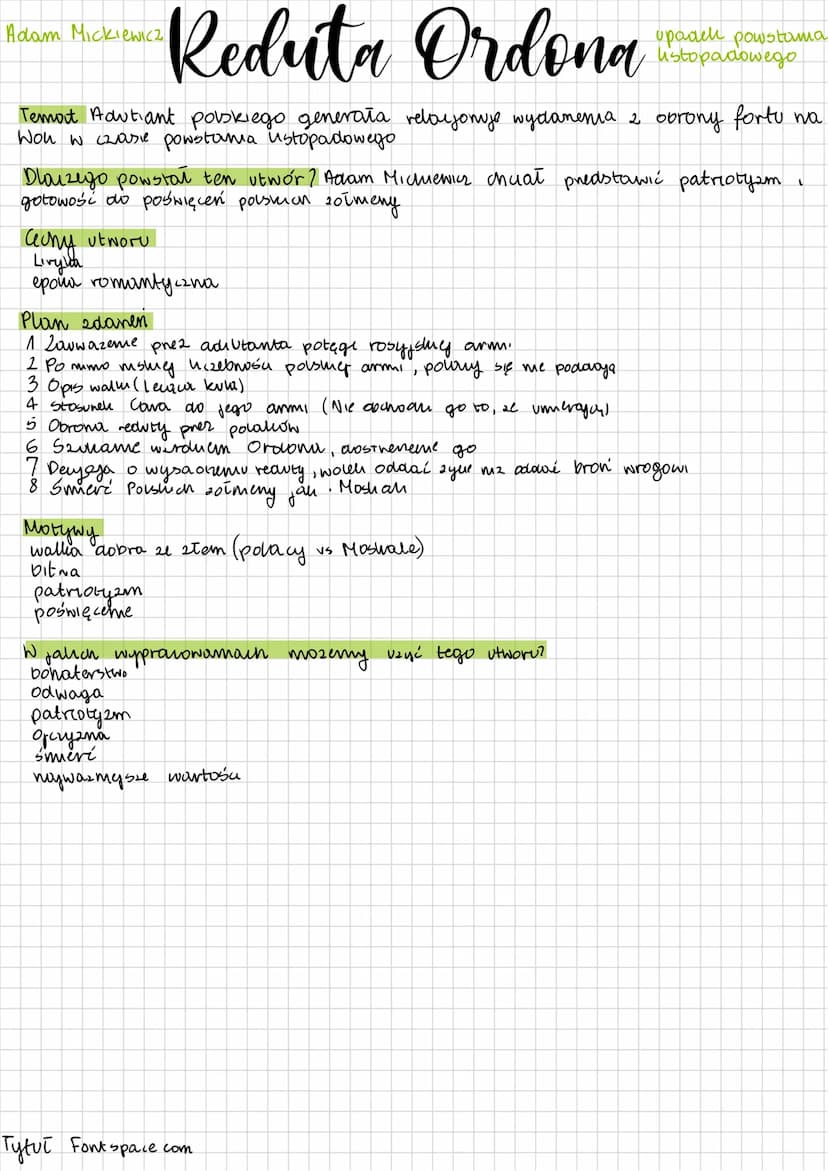 Adam Mickiewicz
Reduta Ordona
upadek powstania
listopadowego
Temat Adiutant polskiego generała relacjonuje wydarzenia z obrony fortu na
Woli w czasie powstania listopadowego
Dlaczego powstał ten utwór? Adam Mickiewicz chciał przedstawić patriotyzm i
gotowość do poświęceń polskich żołnierzy
Cechy utworu
Liryka
epoka romantyczna
Plan zdarzeń
1 Zauważenie przez adiutanta potęgi rosyjskiej armi
2 Po mimo niskiej liczebności polskiej armi, polacy się nie poddają
3 Opis walki (lecąca kula)
4 Stosunek Cara do jego armi (Nie obchodzi go to, że umierają)
5 Obrona reduty przez polaków
6 Szukanie wzrokiem Ordona, dostrzeżenie go
7 Decyzja o wysadzeniu reduty, woleli oddać życie niż oddać broń wrogowi
8 Śmierć Polskich żołnierzy jak i Moskali
Motywy
walka dobra ze złem (polacy vs Moskale)
bitwa
patriotyzm
poświęcenie
W jakich wypracowaniach możemy użyć tego utworu?
bohaterstwo
odwaga
patriotyzm
Ojczyzna
śmierć
najważniejsze wartości
Tytuł Fontspace.com